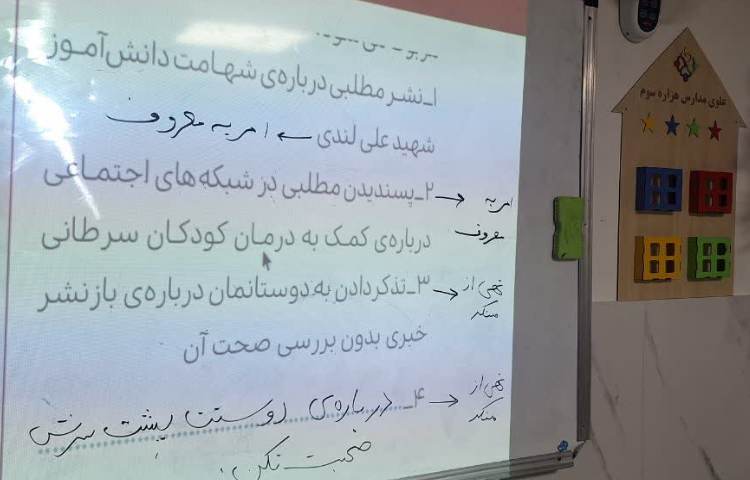 ۱ـ نشر مطلبی درباره‌ی شهامت دانش‌آموز
شهید علی لندی ← امر به معروف
۲ـ پسندیدن مطلبی در شبکه‌های اجتماعی → امر به معروف
درباره‌ی کمک به درمان کودکان سرطانی
۳ـ تذکر دادن به دوستانمان درباره‌ی بازنشر → نهی از منکر
خبری بدون بررسی صحت آن
۴ـ درباره‌ی دوستت پشت سرش → نهی از منکر
صحبت نکن.
علوی مدارس هزاره سوم